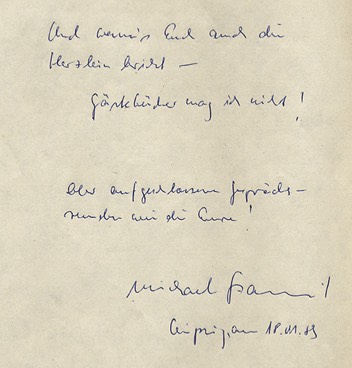 Und wenn's Euch auch die
Herzlein bricht –
Gästebücher mag ich nicht!
Aber aufgeschlossene Gesprächs-
runden wie die Eure!
Michael
Leipzig, am 18.01.89